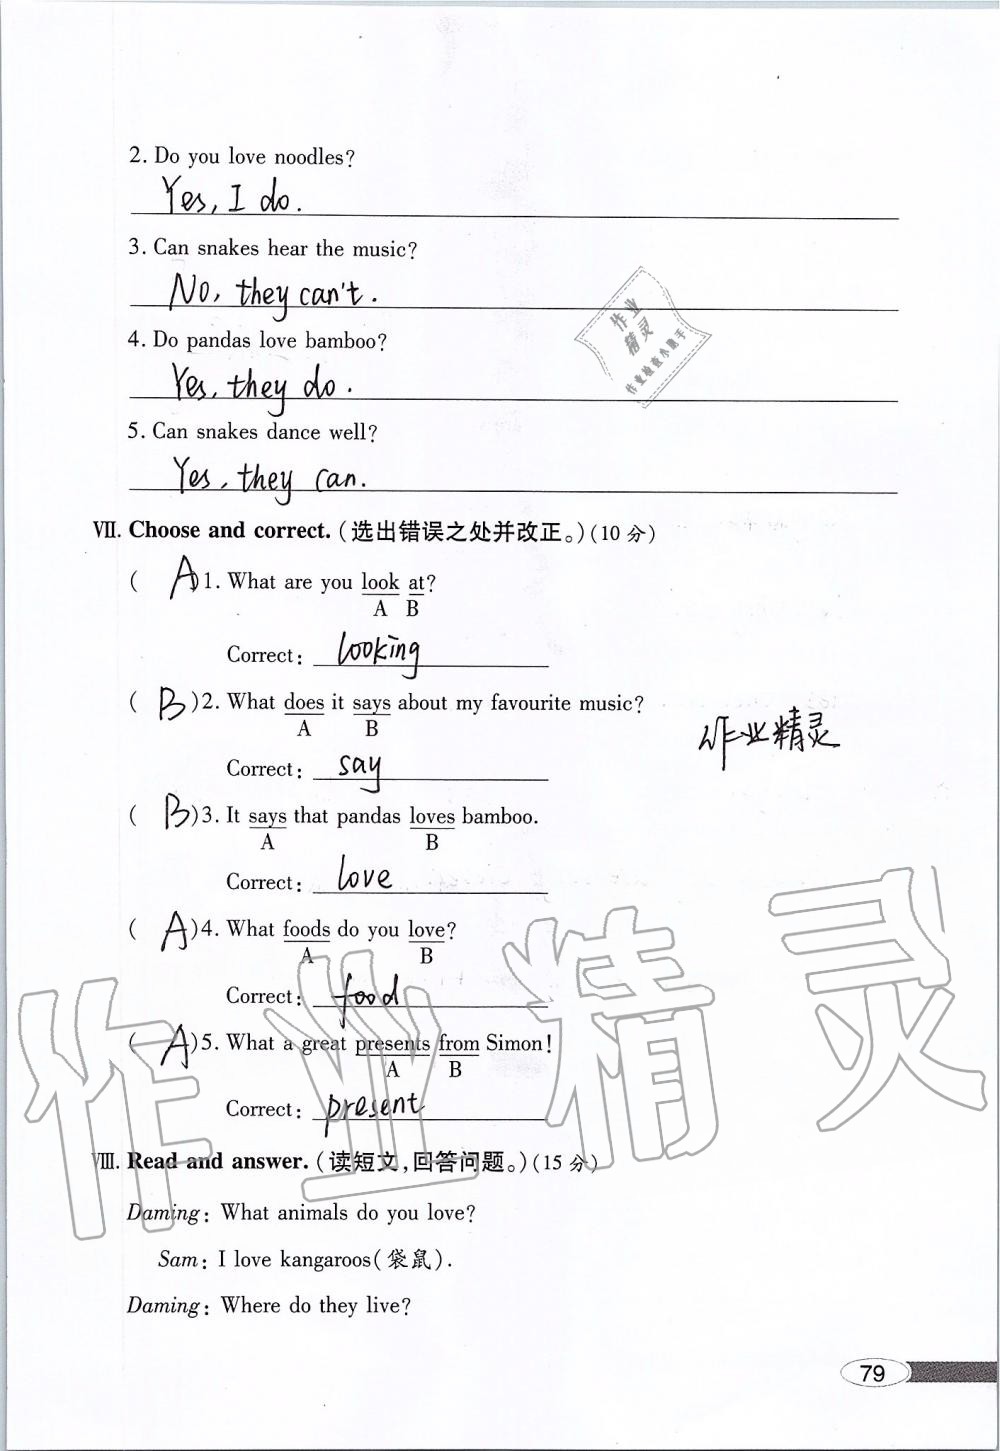 2. Do you love noodles?
Yes, I do.
3. Can snakes hear the music?
No, they can't.
4. Do pandas love bamboo?
Yes, they do.
5. Can snakes dance well?
Yes, they can.
Ⅶ. Choose and correct. (选出错误之处并改正。)(10 分)
( A )1. What are you look at?
A B
Correct: looking
( B )2. What does it says about my favourite music?
A B
Correct: say
( B )3. It says that pandas loves bamboo.
A B
Correct: love
( A )4. What foods do you love?
A B
Correct: food
( A )5. What a great presents from Simon!
A B
Correct: present
Ⅷ. Read and answer. (读短文,回答问题。)(15 分)
Daming: What animals do you love?
Sam: I love kangaroos(袋鼠).
Daming: Where do they live?
79
作业精灵
作业
精灵
作业检查小能手
作业精灵